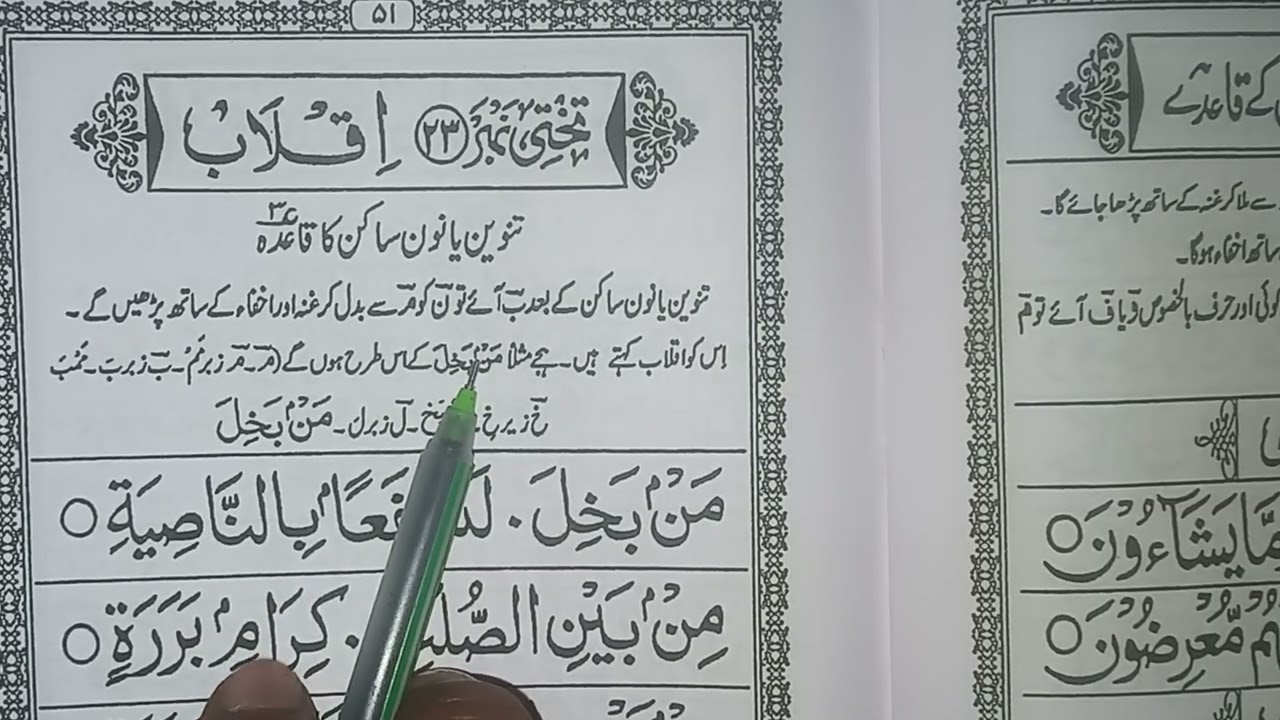 ۵۱
تختی نمبر ۲۳ اِقْلَابْ
تنوین یا نون ساکن کا قاعدہ ۳
تنوین یا نون ساکن کے بعد بؔ آئے تو نؔ کو مؔ سے بدل کر غنہ اور اخفاء کے ساتھ پڑھیں گے۔
اِس کو اقلاب کہتے ہیں۔ ہجے مثلاً مَنْۢ بَخِلَ کے اس طرح ہوں گے (مؔ۔ مؔ زبر مَمْ۔ بؔ زبر بَ۔ مَمْبَ
خؔ زیر خِ۔ لؔ زبر لَ۔ مَنْۢ بَخِلَ
مَنْۢ بَخِلَ ۔ فَعًاۢ بِالنَّاصِيَةِ ○
مِنْۢ بَيْنِ الصُّلْبِ ۔ كِرَامٍۢ بَرَرَةٍ ○
کے قاعدے
سے ملا کر غنہ کے ساتھ پڑھا جائے گا۔
ساتھ اخفاء ہوگا۔
کوئی اور حرف بالخصوص وؔ یا فؔ آئے تو مؔ
مَّا يَشَآءُوْنَ ○
هُمْ مُّعْرِضُوْنَ ○